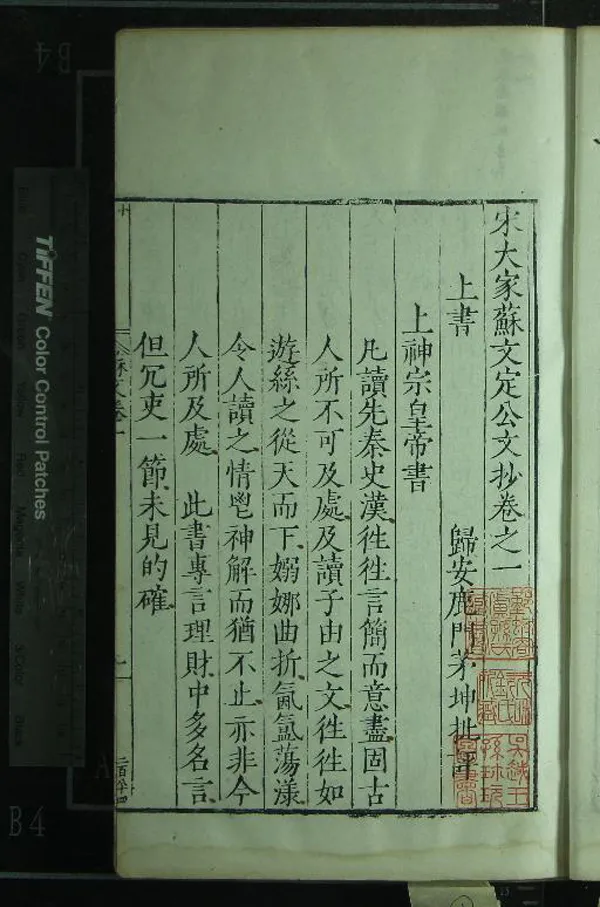 宋大家蘇文定公文抄卷之一
歸安鹿門茅坤批評
上書
上神宗皇帝書
凡讀先秦史漢徃徃言簡而意盡固古
人所不可及處及讀子由之文徃徃如
遊絲之從天而下嫋娜曲折氤氳蕩漾
令人讀之情鬯神解而猶不止亦非今
人所及處 此書專言理財中多名言
但冗吏一節未見的確
蘇文卷一
TIFFEN Color Control Patches
B4
B4
A